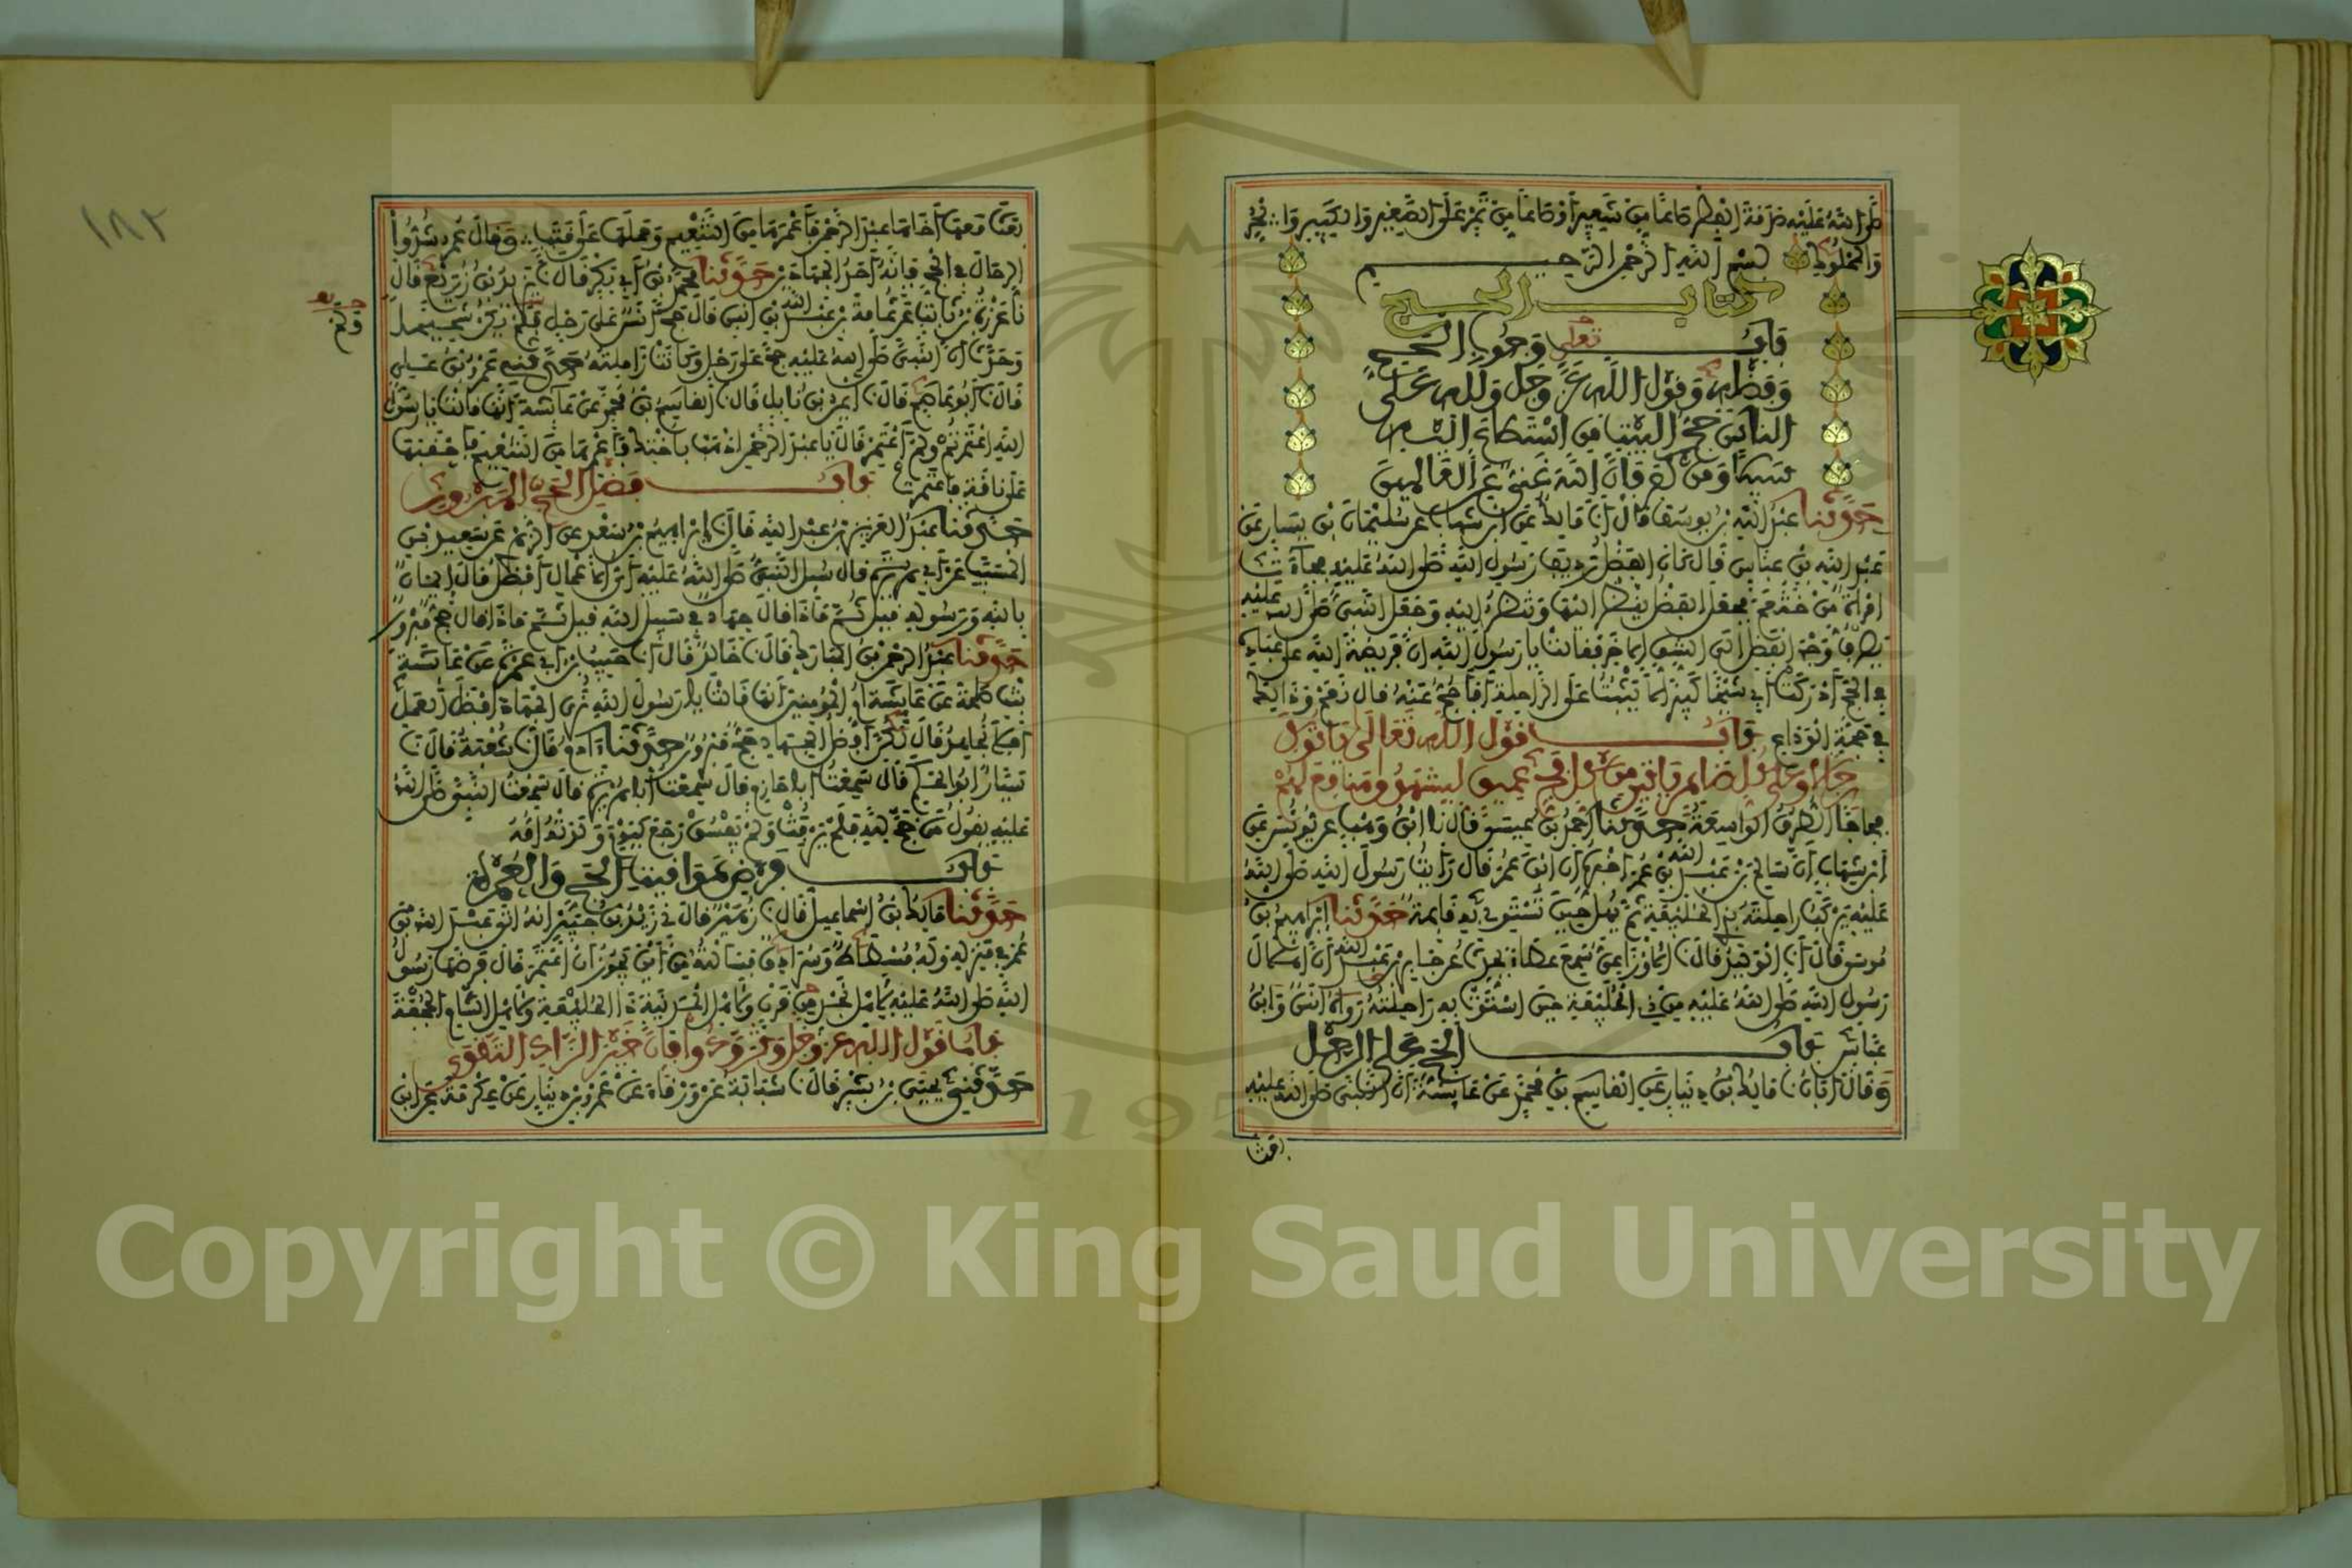 صلى الله عليه صدقة الفطر صاعا من شعير أو صاعا من تمر على الصغير والكبير والحر
والمملوك بسم الله الرحمن الرحيم
كتاب الحج
باب وجوب الحج
تعلى
وفضله وقول الله عز وجل ولله على
الناس حج البيت من استطاع إليه
سبيلا ومن كفر فإن الله غني عن العالمين
حدثنا عبد الله بن يوسف قال أنا مالك عن ابن شهاب عن سليمان بن يسار عن
عبد الله بن عباس قال كان الفضل رديف رسول الله صلى الله عليه فجاءت
امرأة من خثعم فجعل الفضل ينظر إليها وتنظر إليه وجعل النبي صلى الله عليه
يصرف وجه الفضل إلى الشق الآخر فقالت يا رسول الله إن فريضة الله على عباده
في الحج أدركت أبي شيخا كبيرا لا يثبت على الراحلة أفأحج عنه قال نعم وذلك
في حجة الوداع باب قول الله تعالى يأتوك
رجالا وعلى كل ضامر يأتين من كل فج عميق ليشهدوا منافع لهم
فجاجا الطرق الواسعة حدثنا أحمد بن عيسى قال نا ابن وهب عن يونس عن
ابن شهاب أن سالم بن عبد الله بن عمر أخبره أن ابن عمر قال رأيت رسول الله صلى الله
عليه يركب راحلته بذي الحليفة ثم يهل حين تستوي به قائمة حدثنا إبراهيم بن
موسى قال أنا الوليد قال نا الأوزاعي سمع عطاء يحدث عن جابر بن عبد الله أن إهلال
رسول الله صلى الله عليه من ذي الحليفة حين استوت به راحلته رواه أنس وابن
عباس باب الحج على الرحل
وقال أبان نا مالك بن دينار عن القاسم بن محمد عن عائشة أن النبي صلى الله عليه
بعث
بعث معها أخاها عبد الرحمن فأعمرها من التنعيم وحملها على قتب وقال عمر شدوا
الرحال في الحج فإنه أحد الجهادين حدثنا محمد بن أبي بكر قال نا يزيد بن زريع قال
نا عزرة بن ثابت عن ثمامة بن عبد الله بن أنس قال حج أنس على رحل ولم يكن شحيحا
ولم
وحدث أن النبي صلى الله عليه حج على رحل وكانت زاملته حدثني عمرو بن علي
قال نا أبو عاصم قال نا أيمن بن نابل قال نا القاسم بن محمد عن عائشة أنها قالت يا رسول
الله اعتمرتم ولم أعتمر قال يا عبد الرحمن اذهب بأختك فأعمرها من التنعيم فأحقبها
على ناقة فاعتمرت باب فضل الحج المبرور
حدثنا عبد العزيز بن عبد الله قال نا إبراهيم بن سعد عن الزهري عن سعيد بن
المسيب عن أبي هريرة قال سئل النبي صلى الله عليه أي الأعمال أفضل قال إيمان
بالله ورسوله قيل ثم ماذا قال جهاد في سبيل الله قيل ثم ماذا قال حج مبرور
حدثنا عبد الرحمن بن المبارك قال نا خالد قال أنا حبيب بن أبي عمرة عن عائشة
بنت طلحة عن عائشة أم المؤمنين أنها قالت يا رسول الله نرى الجهاد أفضل العمل
أفلا نجاهد قال لكن أفضل الجهاد حج مبرور حدثنا آدم قال نا شعبة قال نا
سيار أبو الحكم قال سمعت أبا حازم قال سمعت أبا هريرة قال سمعت النبي صلى الله
عليه يقول من حج لله فلم يرفث ولم يفسق رجع كيوم ولدته أمه
باب فرض مواقيت الحج والعمرة
حدثنا مالك بن إسماعيل قال نا زهير قال ني زيد بن جبير أنه أتى عبد الله بن
عمر في منزله وله فسطاط وسرادق فسألته من أين يجوز أن أعتمر قال فرضها رسول
الله صلى الله عليه لأهل نجد من قرن ولأهل المدينة ذا الحليفة ولأهل الشام الجحفة
باب قول الله عز وجل وتزودوا فإن خير الزاد التقوى
حدثني يحيى بن بشر قال نا شبابة عن ورقاء عن عمرو بن دينار عن عكرمة عن ابن
١٨٢
Copyright © King Saud University
1957